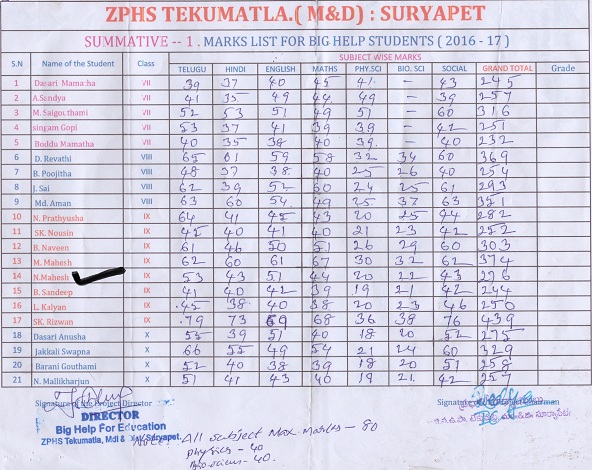 ZPHS TEKUMATLA.( M&D) : SURYAPET
SUMMATIVE -- 1 . MARKS LIST FOR BIG HELP STUDENTS ( 2016 - 17 )
S.N Name of the Student Class SUBJECT WISE MARKS Grade
TELUGU HINDI ENGLISH MATHS PHY.SCI BIO. SCI SOCIAL GRAND TOTAL
1 Dasari Mamatha VII 39 37 40 45 41 - 43 245
2 A.Sandya VII 41 35 49 44 49 - 39 257
3 M. Saigouthami VII 52 53 51 49 51 - 60 316
4 singam Gopi VII 53 37 41 39 39 - 42 251
5 Boddu Mamatha VII 40 35 38 40 39 - 40 232
6 D. Revathi VIII 65 61 59 58 32 34 60 369
7 B. Poojitha VIII 48 37 38 40 25 26 40 254
8 J. Sai VIII 62 39 52 60 24 25 61 293
9 Md. Aman VIII 63 60 54 49 25 37 63 351
10 N. Prathyusha IX 64 41 45 43 20 25 44 282
11 SK. Nousin IX 45 40 41 40 21 23 42 252
12 B. Naveen IX 61 46 50 51 26 29 60 303
13 M. Mahesh IX 62 60 61 67 30 32 62 374
14 N.Mahesh IX 53 43 51 44 20 22 43 276
15 B. Sandeep IX 41 40 42 39 19 21 42 244
16 L. Kalyan IX 45 38 40 38 20 23 46 250
17 SK. Rizwan IX 79 73 69 68 36 38 76 439
18 Dasari Anusha X 55 39 51 40 18 20 52 275
19 Jakkali Swapna X 66 55 49 54 21 24 60 329
20 Barani Gouthami X 52 40 38 39 18 20 51 258
21 N. Mallikharjun X 51 41 43 40 19 21 42 257
Signature of the Project Director Signature of
DIRECTOR
Big Help For Education
ZPHS Tekumatla, Mdl & Dist. Suryapet.
Note: All subject Max. Marks - 80
Physics - 40
Bio. science - 40.